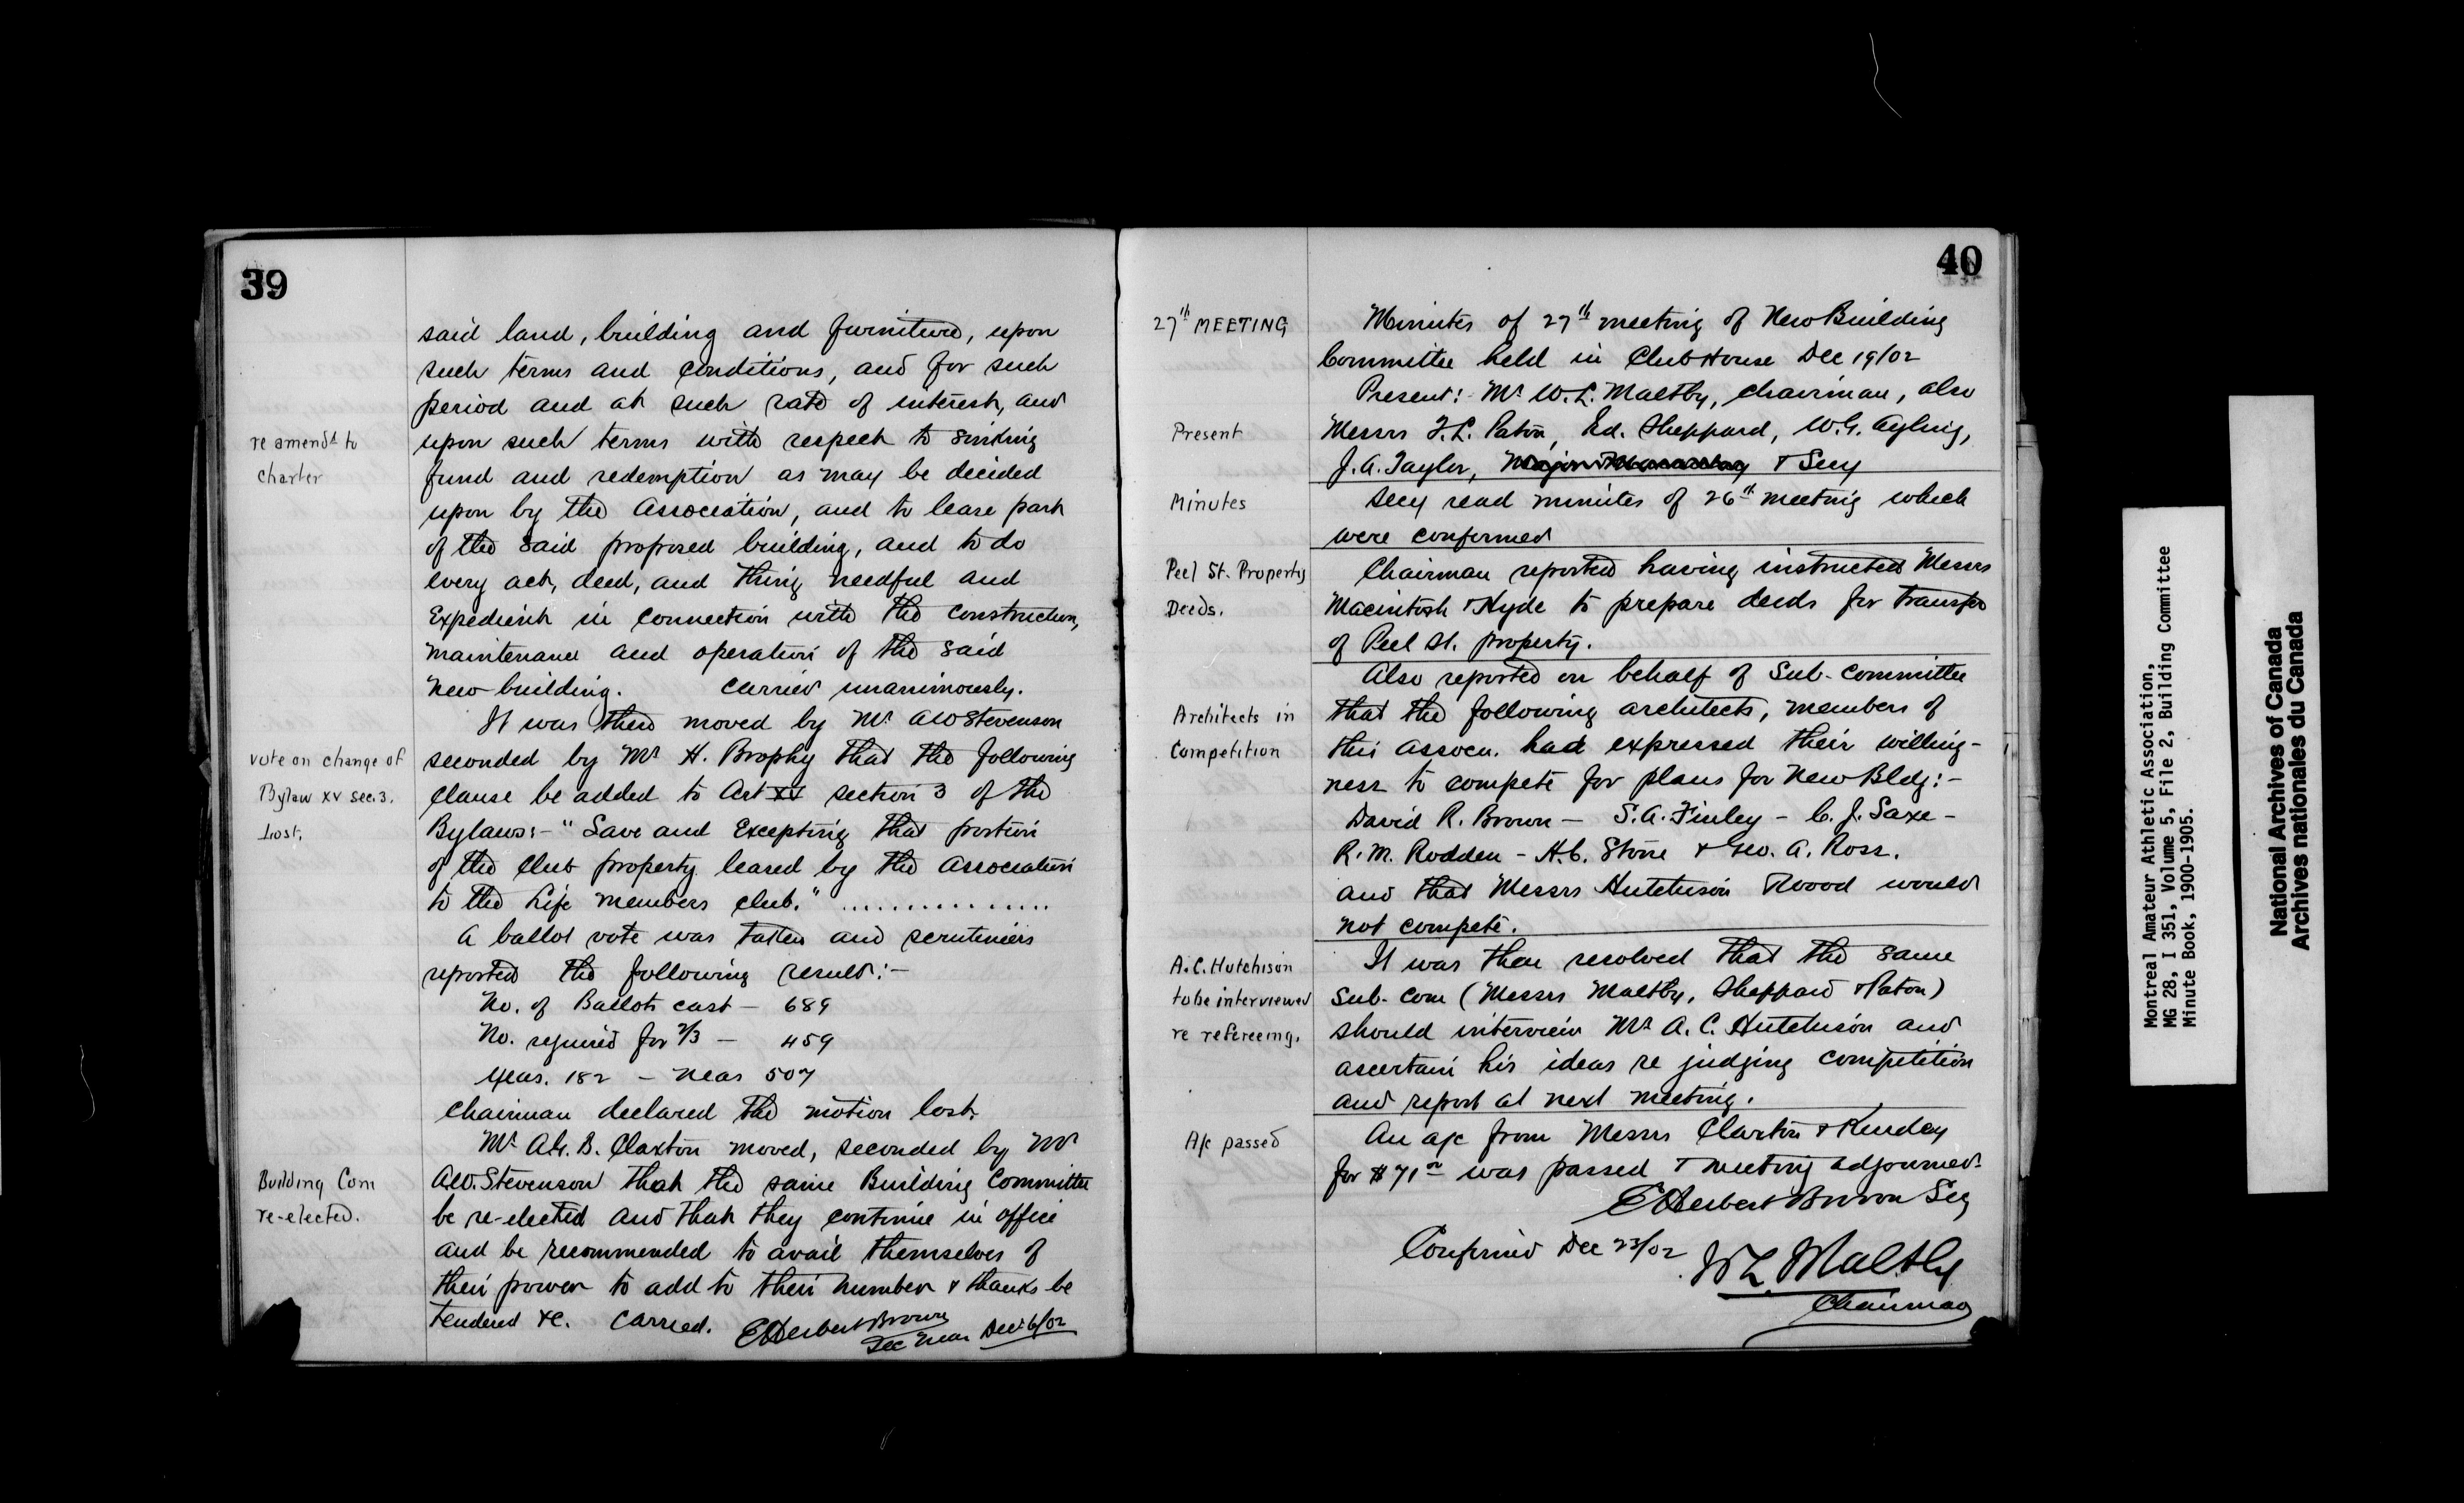 39
said land, building and furniture, upon
such terms and conditions, and for such
period and at such rate of interest, and
re amendt to
upon such terms with respect to sinking
charter
fund and redemption as may be decided
upon by the Association, and to lease part
of the said proposed building, and to do
every act, deed, and thing needful and
Expedient in connection with the construction,
maintenance and operation of the said
New building. Carried unanimously.
It was then moved by Mr AW Stevenson
vote on change of
seconded by Mr H. Brophy that the following
Bylaw XV sec. 3.
Clause be added to Art XV section 3 of the
Lost.
Bylaws:- "Save and Excepting that portion
of the Club property leased by the Association
to the Life members club." ................
A ballot vote was taken and scrutineers
reported the following result:-
No. of Ballots cast - 689
No. required for 2/3 - 459
Yeas. 182 - Neas 507
Chairman declared the motion lost.
Mr A.G.B. Claxton moved, seconded by Mr
Building Com
A.W. Stevenson that the same Building Committee
re-elected.
be re-elected and that they continue in office
and be recommended to avail themselves of
their power to add to their number & thanks be
tendered &c. Carried. E Herbert Brown
Dec 6/02
40
27th MEETING
Minutes of 27th meeting of New Building
Committee held in Club House Dec 19/02
Present: Mr W.L. Maltby, Chairman, also
Present
Messrs T.L. Paton, Ed. Sheppard, W.G. Ayling,
J.A. Taylor, & Secy
Minutes
Secy read minutes of 26th meeting which
were confirmed
Peel St. Property
Chairman reported having instructed Messrs
Deeds.
Macintosh & Hyde to prepare deeds for transfer
of Peel St. property.
Also reported on behalf of Sub-Committee
Architects in
that the following architects, members of
Competition
this assocn. had expressed their willing-
ness to compete for plans for New Bldg:-
David R. Brown - S.A. Finley - C.J. Saxe -
R.M. Rodden - H.C. Stone & Geo. A. Ross.
and that Messrs Hutchison & Wood would
not compete.
A.C. Hutchison
It was then resolved that the same
to be interviewed
Sub-Com (Messrs Maltby, Sheppard & Paton)
re refereeing.
should interview Mr A.C. Hutchison and
ascertain his ideas re judging competition
and report at next meeting.
A/c passed
An a/c from Messrs Claxton &
for $71 was passed & meeting adjourned.
E Herbert Brown Secy
Confirmed Dec 23/02 W L Maltby
Chairman
Montreal Amateur Athletic Association,
MG 28, I 351, Volume 5, File 2, Building Committee
Minute Book, 1900-1905.
National Archives of Canada
Archives nationales du Canada